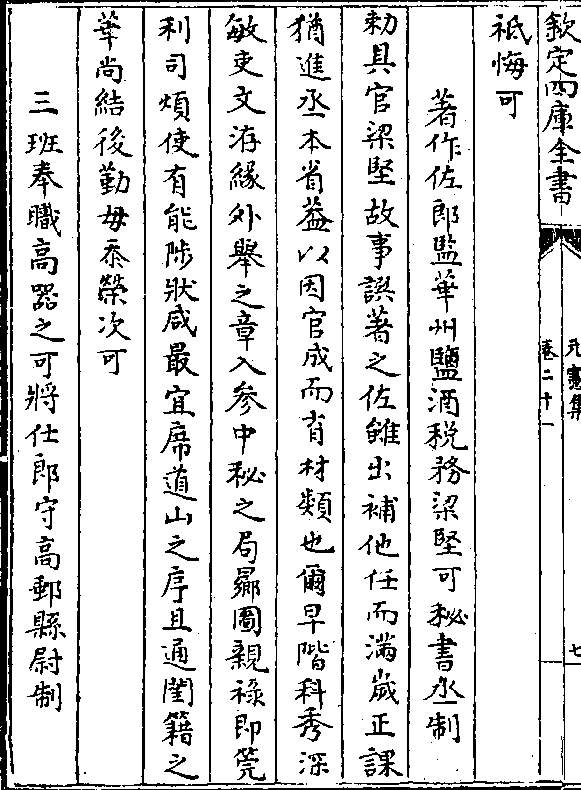 欽定四庫全書
元憲集
卷二十一
七
祗悔可
著作佐郎監華州鹽酒税務梁堅可秘書丞制
勅具官梁堅故事譔著之佐雖出補他任而滿歲正課
猶進丞本省葢以因官成而肯材類也爾早階科秀深
敏吏文洊緣外舉之章入參中秘之局鄉圖親祿即筦
利司煩使有能陟狀咸最宜席道山之序且通閨籍之
華尚結後勤毋忝榮次可
三班奉職高器之可將仕郎守高郵縣尉制